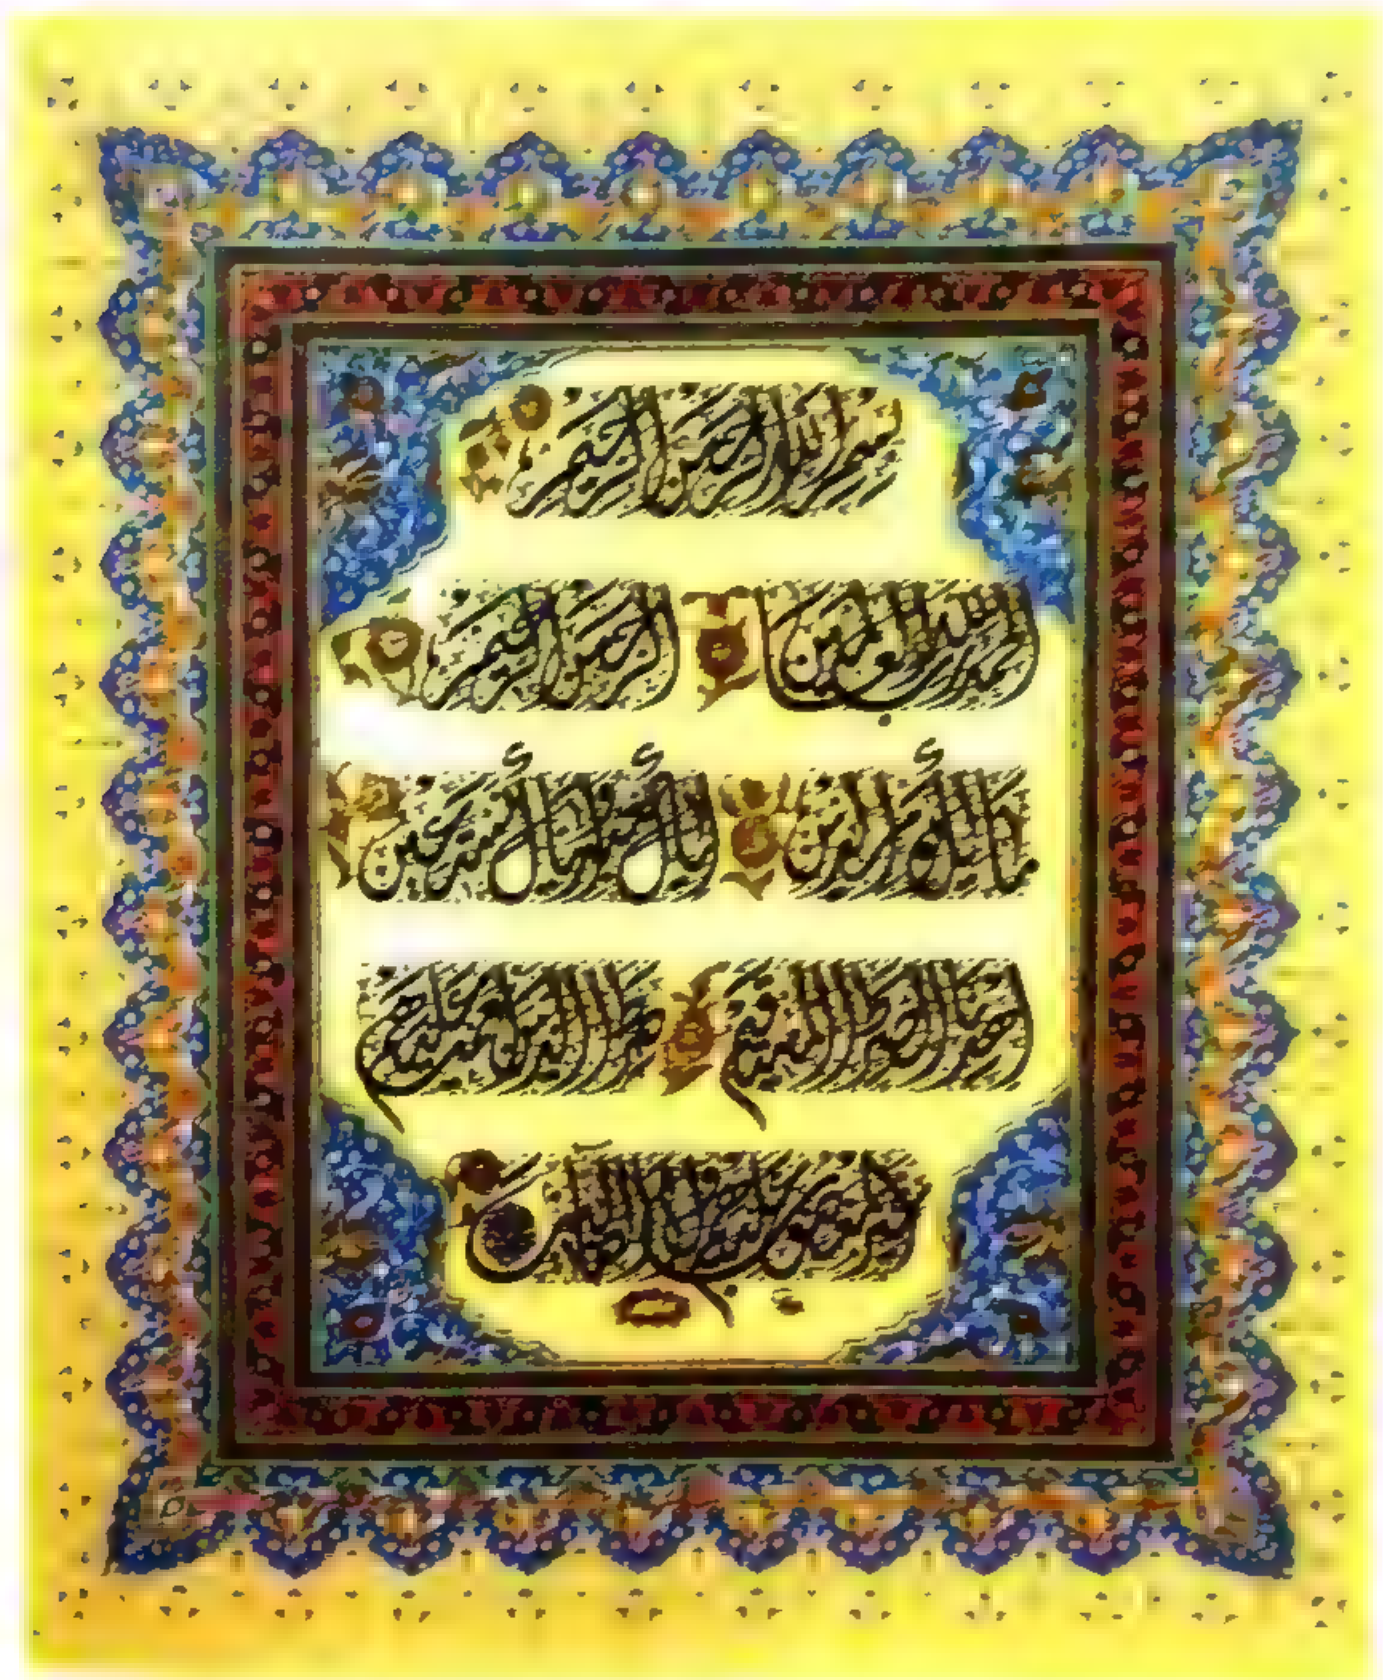 بسم الله الرحمن الرحيم
الحمد لله رب العالمين الرحمن الرحيم
مالك يوم الدين اياك نعبد واياك نستعين
اهدنا الصراط المستقيم صراط الذين انعمت عليهم
غير المغضوب عليهم ولا الضالين